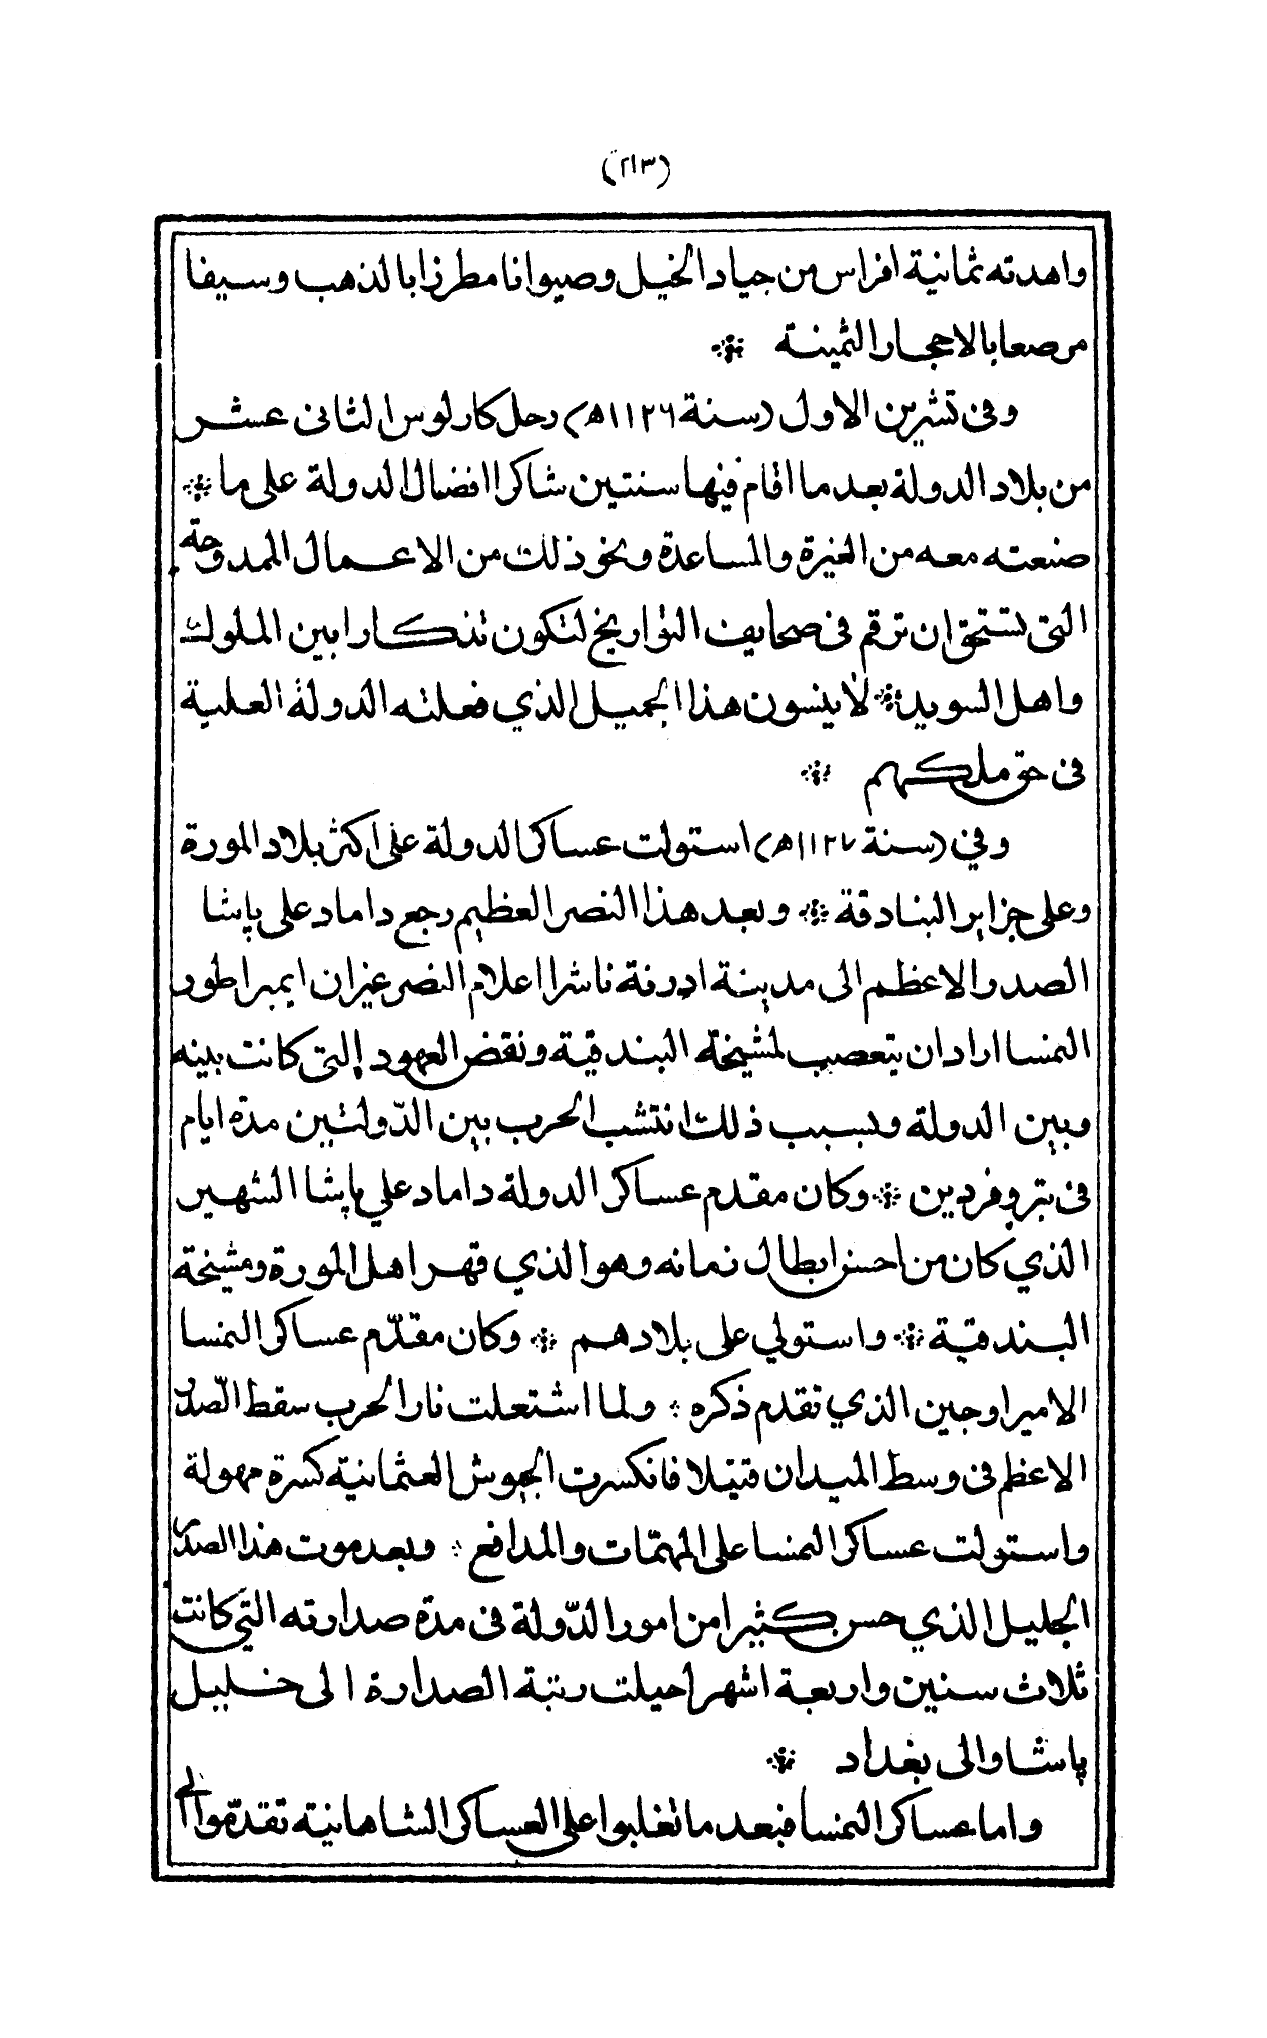 (٢١٣)
واهدته ثمانية افراس من جياد الخيل وصيوانا مطرزا بالذهب وسيفا
مرصعا بالاحجار الثمينة *
وفى تشرين الاول (سنة ١١٢٦ه) رحل كارلوس الثانى عشر
من بلاد الدولة بعد ما اقام فيها سنتين شاكرا افضال الدولة على ما *
صنعته معه من الغيرة والمساعدة ونحو ذلك من الاعمال الممدوحة
التى تستحق ان ترقم فى صحايف التواريخ لتكون تذكارا بين الملوك
واهل السويد * لا ينسون هذا الجميل الذي فعلته الدولة العلية
فى حق ملكهم *
وفي (سنة ١١٢٧ه) استولت عساكر الدولة على اكثر بلاد المورة
وعلى جزاير البنادقة * وبعد هذا النصر العظيم رجع داماد على پاشا
الصدر الاعظم الى مدينة ادرنة ناشرا اعلام النصر غير ان ايمبراطور
النمسا اراد ان يتعصب لمشيخة البندقية ونقض العهود التى كانت بينه
وبين الدولة وبسبب ذلك انتشب الحرب بين الدّولتين مدة ايام
فى بتروفردين * وكان مقدم عساكر الدولة داماد علي پاشا الشهير
الذي كان من احسن ابطال زمانه وهو الذي قهر اهل المورة ومشيخة
البندقية * واستولي على بلادهم * وكان مقدّم عساكر النمسا
الامير اوجين الذي تقدم ذكره * ولما اشتعلت نار الحرب سقط الصّدر
الاعظم فى وسط الميدان قتيلا فانكسرت الجيوش العثمانية كسرة مهولة
واستولت عساكر النمسا على المهمّات والمدافع * وبعد موت هذا الصدر
الجليل الذي حسن كثيرا من امور الدّولة فى مدة صدارته التي كانت
ثلاث سنين واربعة اشهر احيلت رتبة الصدارة الى خليل
پاشا والى بغداد *
واما عساكر النمسا فبعد ما تغلبوا على العساكر الشاهانية تقدّموا الى